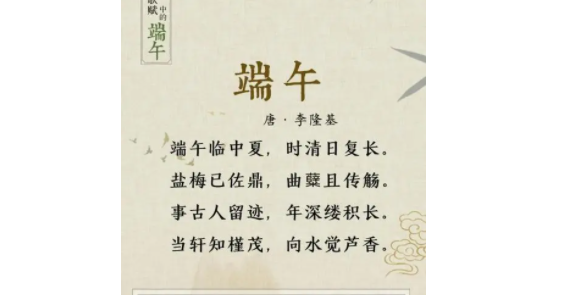 赋
中的
端午
端午
唐·李隆基
端午临中夏，时清日复长。
盐梅已佐鼎，曲糵且传觞。
事古人留迹，年深缕积长。
当轩知槿茂，向水觉芦香。